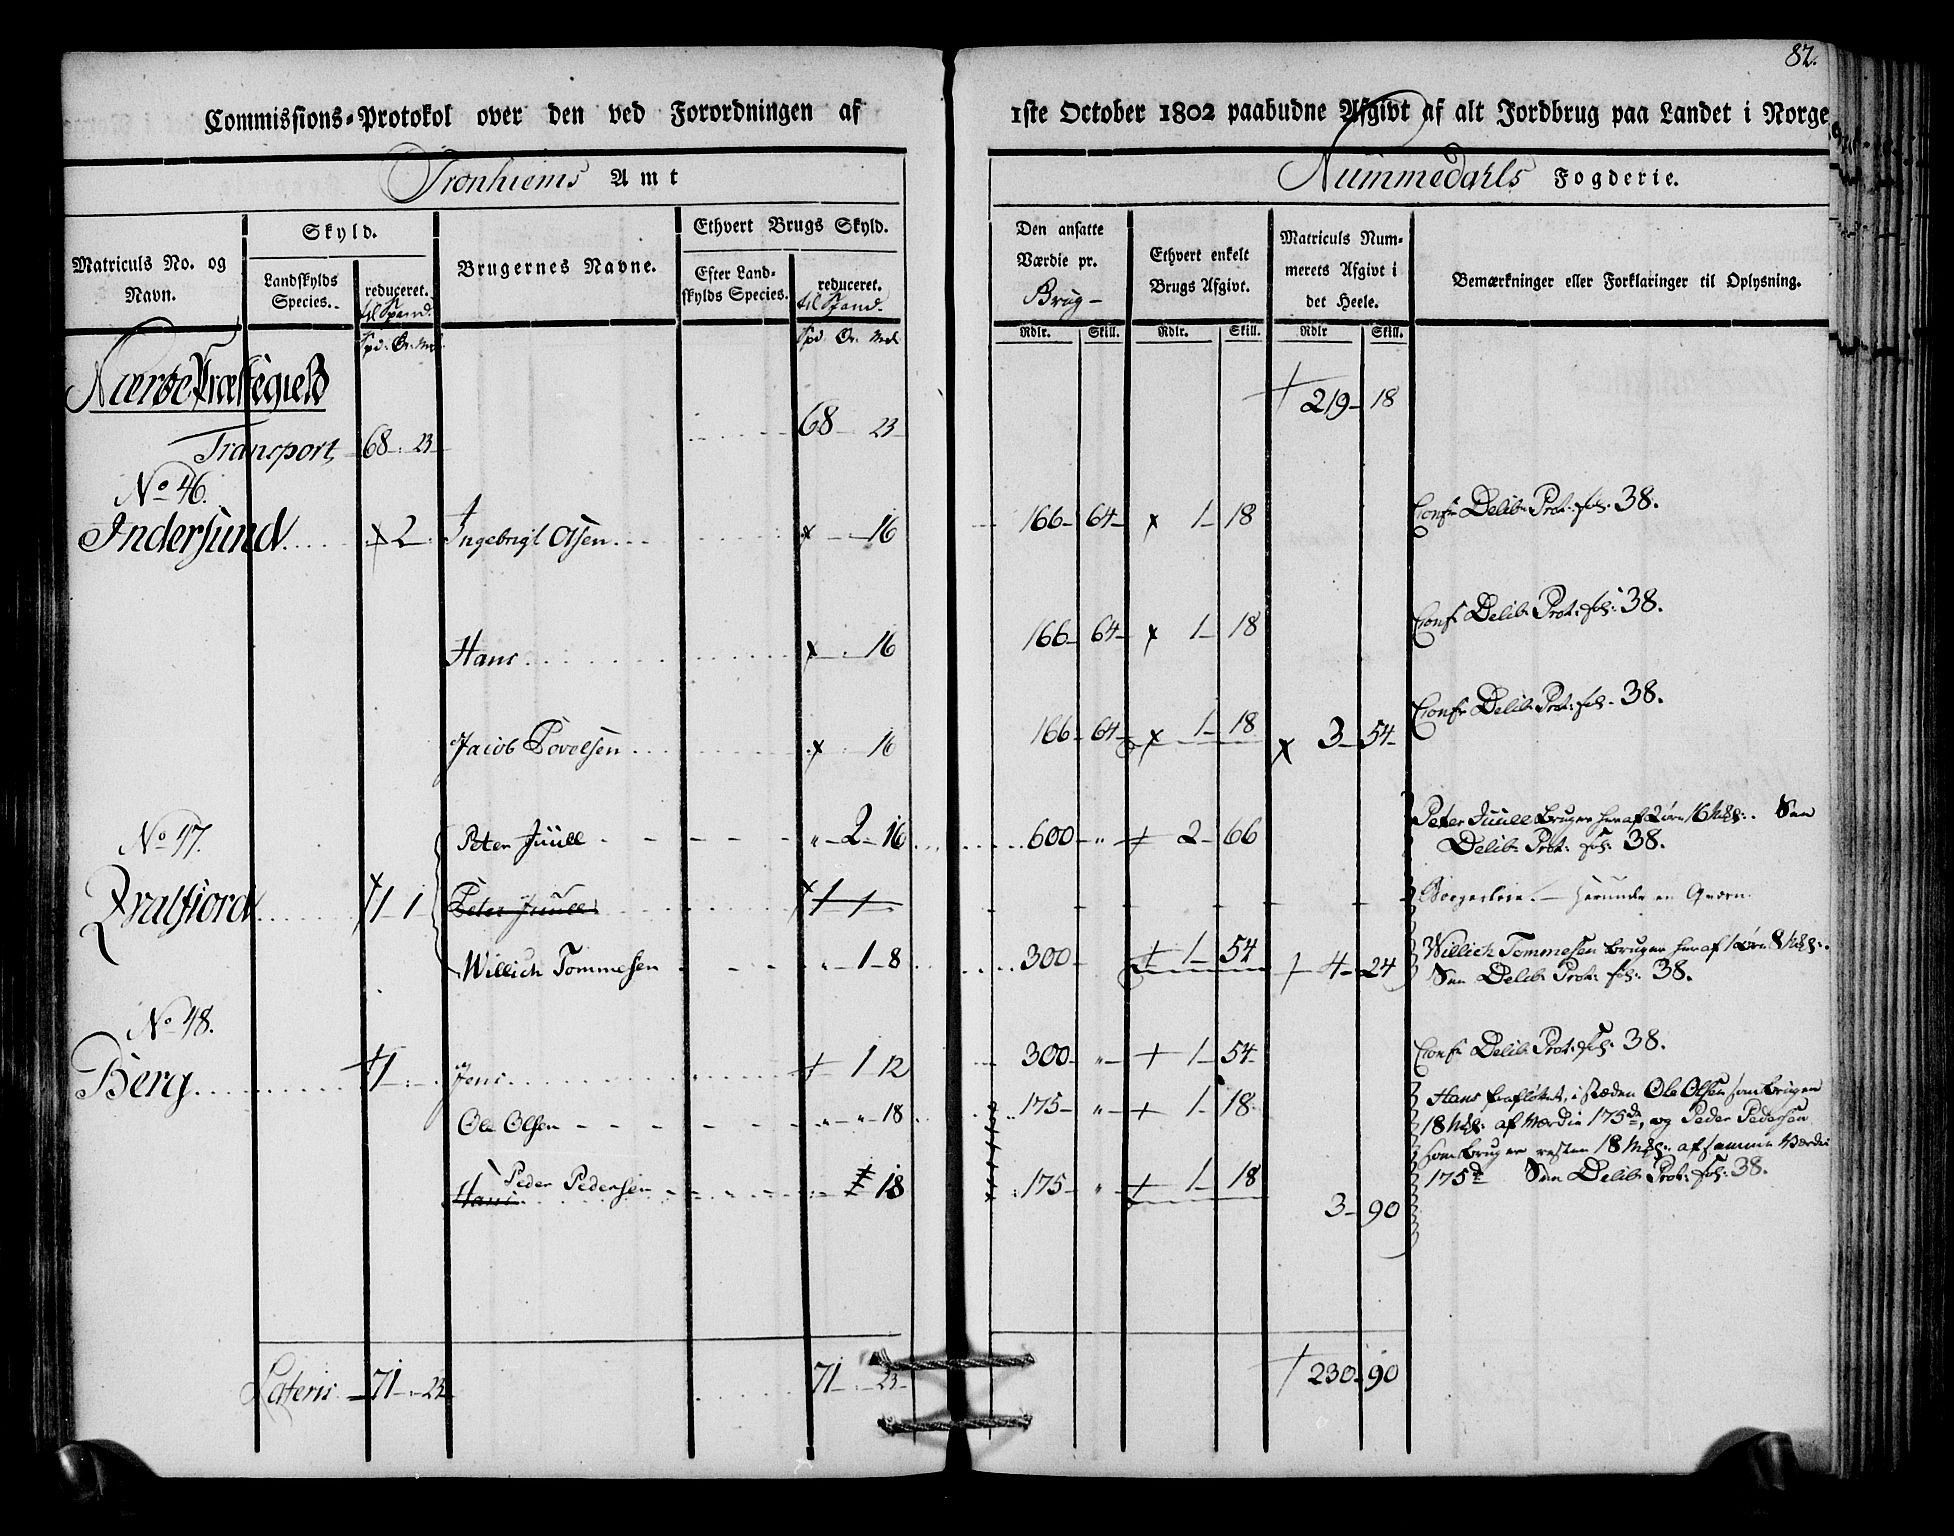 82.
Commissions-Protokol over den ved Forordningen af 1ste October 1802 paabudne Afgivt af alt Jordbrug paa Landet i Norge
Tronhiems Amt
Nummedahls Fogderie.
Matriculs No. og Navn.
Skyld.
Landskylds Species.
reduceret. til Spand.
Brugernes Navne.
Ethvert Brugs Skyld.
Efter Landskylds Species.
reduceret. til Spand.
Den ansatte Værdie pr. Brug
Ethvert enkelt Brugs Afgivt.
Matriculs Nummerets Afgivt i det Heele.
Bemærkninger eller Forklaringer til Oplysning.
Rdlr. Skill. Rdlr. Skill. Rdlr Skill.
Nærøe Præstegield
219 - 18
Transport 68 - 23 68 - 23
No 46.
Indersund x 2 Ingebrigt Olsen x 16 166 - 64 x 1 - 18 Confr Delib: Prot: fol: 38.
Hans x 16 166 - 64 x 1 - 18 Confr Delib: Prot: fol: 38.
Jacob Povelsen x 16 166 - 64 x 1 - 18 x 3 - 54 Confr Delib: Prot: fol: 38.
No 47.
Peter Juull " - 2 - 16 600 - " + 2 - 66 Peter Juull bruger heraf 2 Øre 16 Mkl: See
Delib: Prot: fol: 38.
1 - 1 Peter Juull 1 - 1 Borgerleie. - herunder en Qværn
Willich Tommesen " - 1 - 8 300 - + 1 - 54 + 4 - 24 Willich Tommesen bruger heraf 1 Øre 8 Mkl:
See Delib: Prot: fol: 38.
No 48.
Berg + 1 Jens + 1 12 300 - " + 1 - 54 Confr Delib: Prot: fol: 38.
Ole Olsen " - " - 18 175 - " + 1 - 18 Hans frafløttet, i stæden Ole Olsen som bruger
18 Mkl: af Værdie 175 dr, og Peder Pedersen
Hans Peder Pedersen 18 175 - " + 1 - 18 som bruger resten 18 Mkl: af samme Værdie
175 dr See Delib: Prot: fol: 38.
3 - 90
Lateris 71 - 23 71 - 23 + 230 - 90